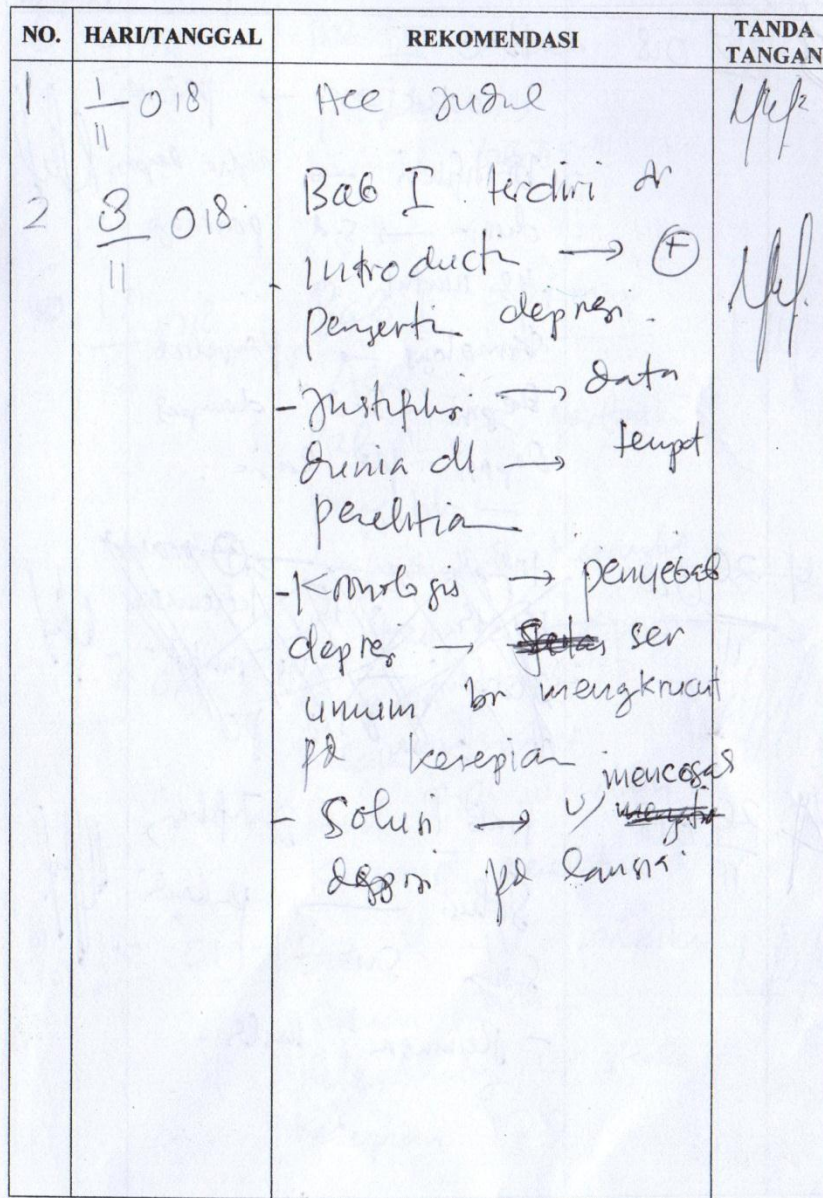 NO. HARI/TANGGAL REKOMENDASI TANDA TANGAN
1 1/11 018 Acc Judul
2 8/11 018. Bab I terdiri dr
- Introducti → +
Pengerti depresi.
- Justifikasi → data
dunia dll → tempat
penelitian
- Kronologis → penyebab
depresi → ser
umum br mengkrucut
pd kesepian
- Solusi → u/ mencegah
depresi pd lansia.